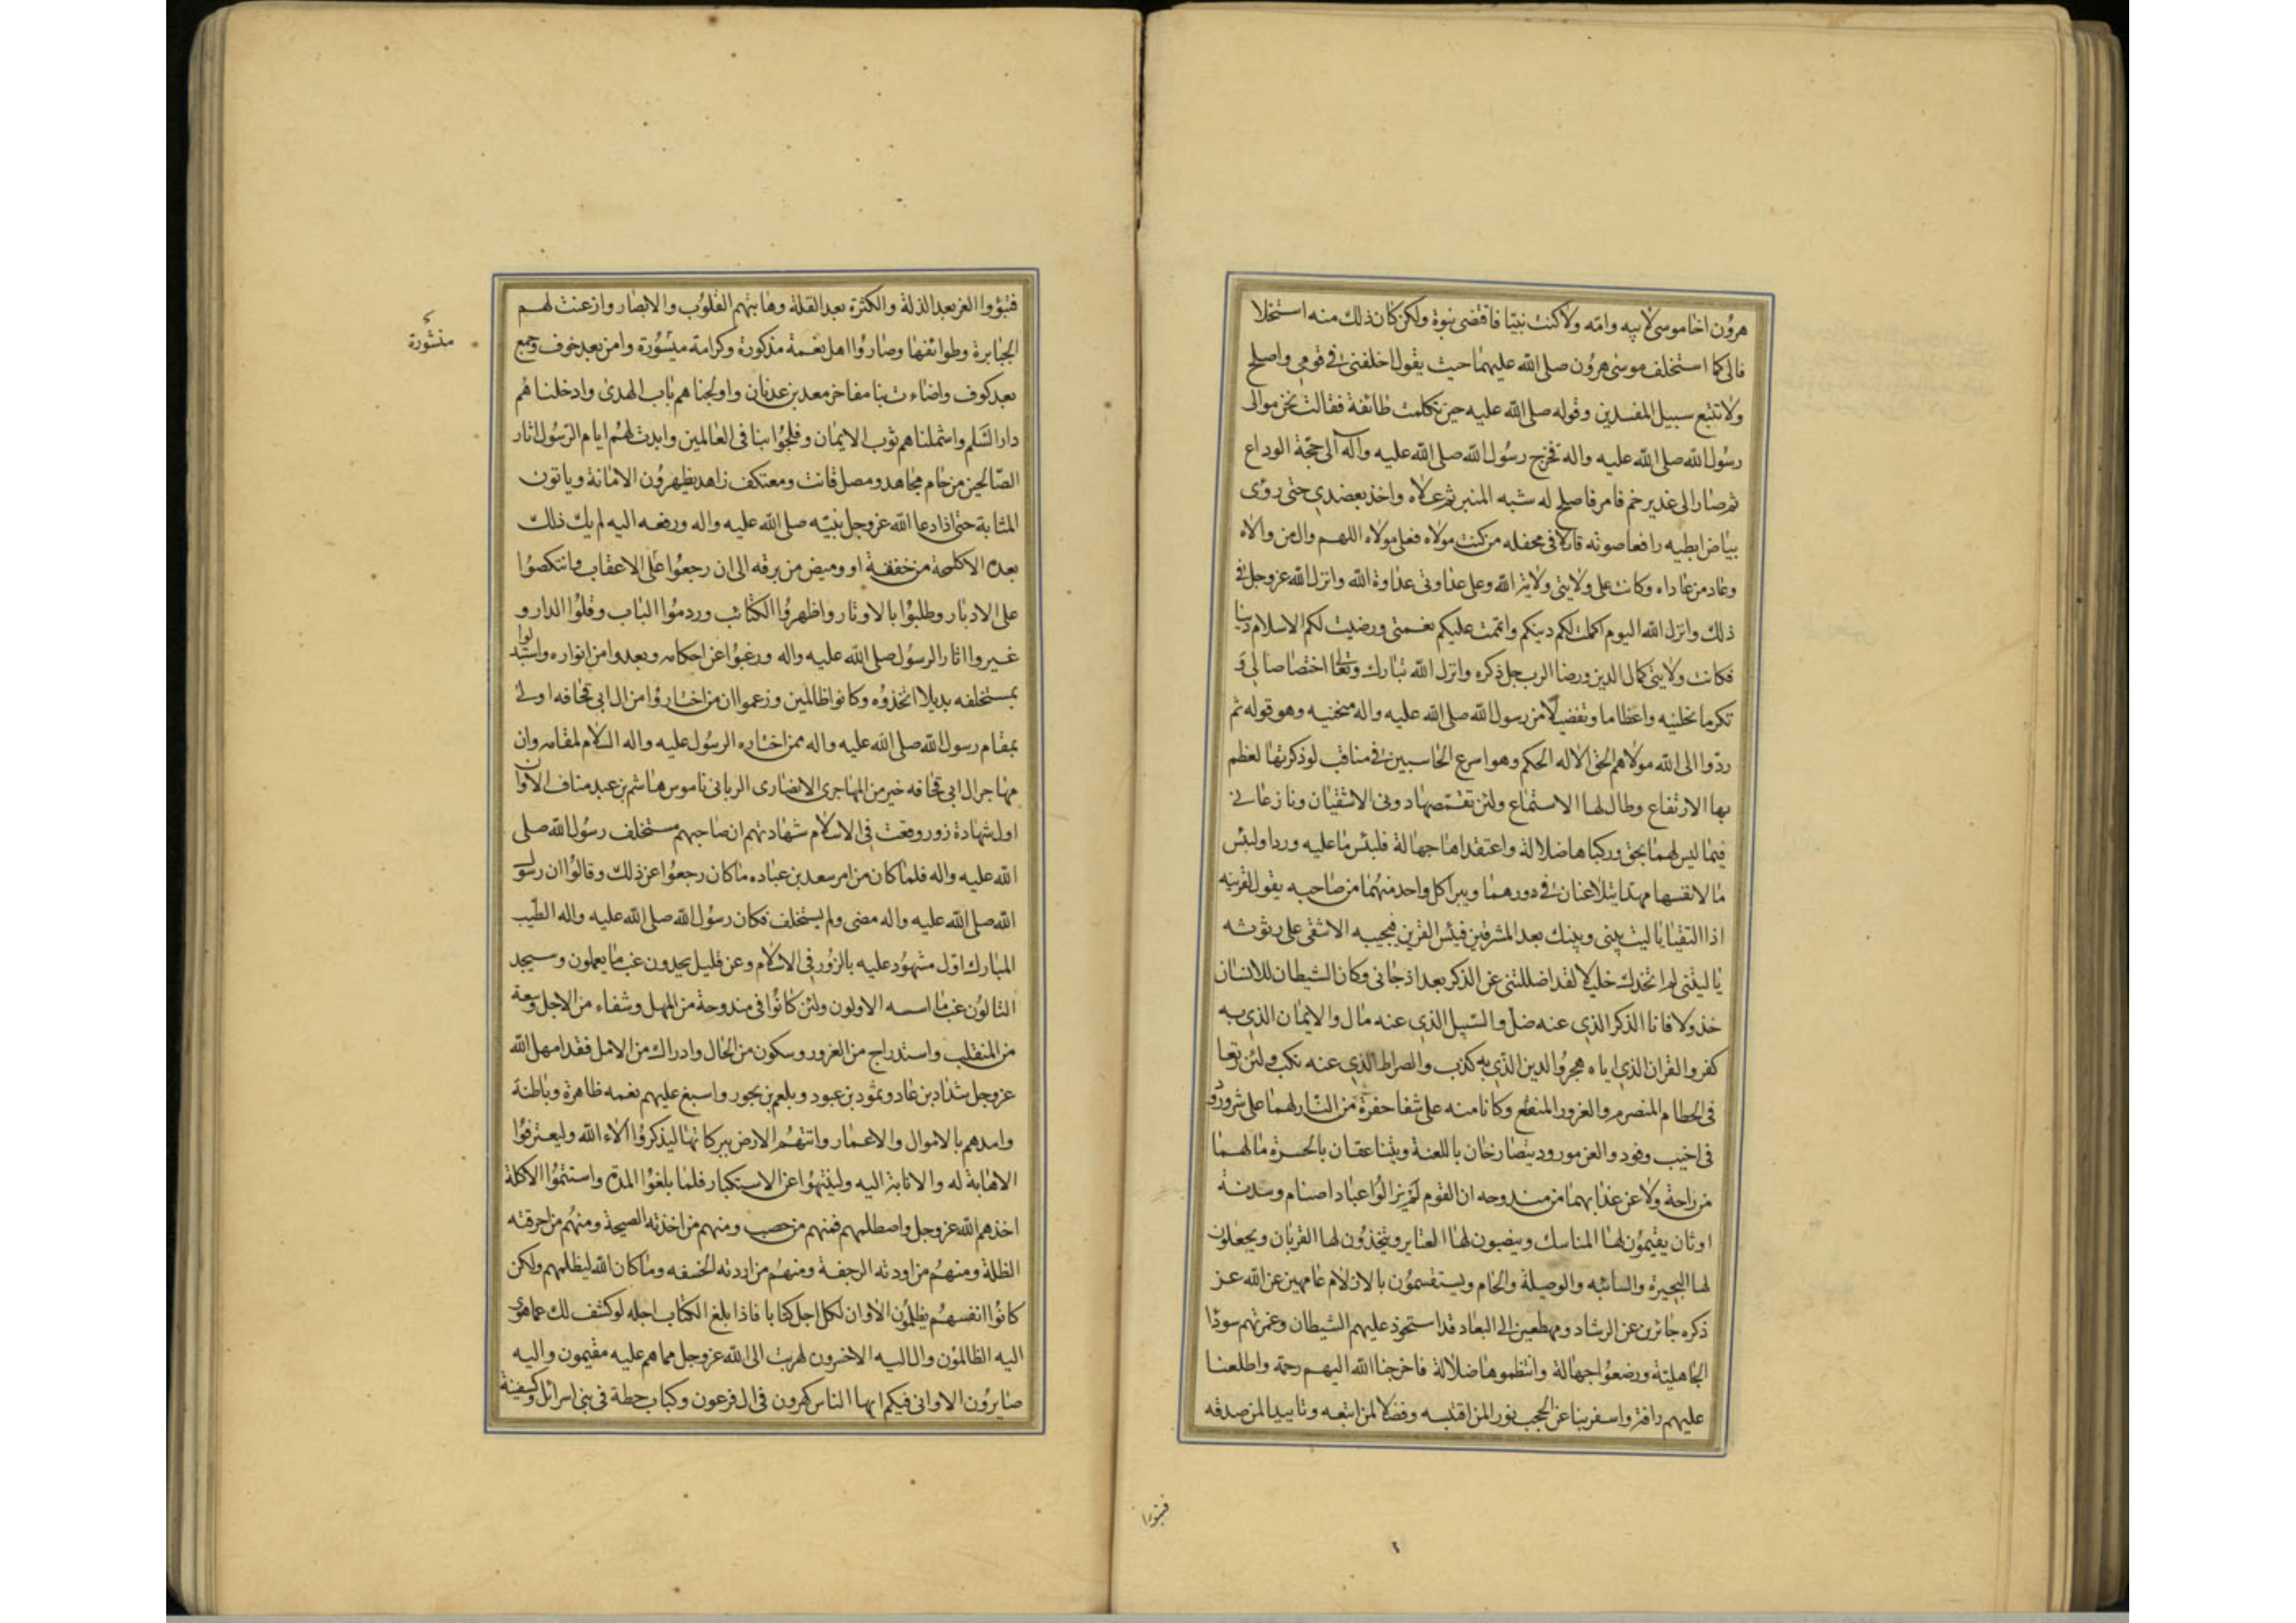 هرون اخا موسى لابيه وامه ولا كنت نبيا فاقتضى نبوة ولكن كان ذلك منه استخلا
فا لى كما استخلف موسى هرون صلى الله عليهما حيث يقول اخلفنى فى قومى واصلح
ولا تتبع سبيل المفسدين وقوله صلى الله عليه حين تكلمت طائفة فقالت نحن موالى
رسول الله صلى الله عليه واله فخرج رسول الله صلى الله عليه وآله الى حجة الوداع
ثم صار الى غدير خم فامر فاصلح له شبه المنبر ثم علاه واخذ بعضدى حتى رؤى
بياض ابطيه رافعا صوته قائلا فى محفله من كنت مولاه فعلى مولاه اللهم وال من والاه
وعاد من عاداه وكانت على ولايتى ولاية الله وعلى عداوتى عداوة الله وانزل الله عز وجل فى
ذلك وانزل الله اليوم اكملت لكم دينكم واتممت عليكم نعمتى ورضيت لكم الاسلام دينا
فكانت ولايتى كمال الدين ورضا الرب جل ذكره وانزل الله تبارك وتعالى اختصاصا لى و
تكرما نحلنيه واعظاما وتفضيلا من رسول الله صلى الله عليه واله منحنيه وهو قوله ثم
ردوا الى الله مولاهم الحق الا له الحكم وهو اسرع الحاسبين فى مناقب لو ذكرتها لعظم
بها الارتفاع وطال لها الاستماع ولئن تقمصها دونى الاشقيان ونازعانى
فيما ليس لهما بحق وركباها ضلالة واعتقداها جهالة فلبئس ما عليه وردا ولبئس
ما لانفسهما مهدا يتلاعنان فى دورهما ويبرا كل واحد منهما من صاحبه يقول لقرينه
اذا التقيا يا ليت بينى وبينك بعد المشرقين فبئس القرين فيجيبه الاشقى على رثوثه
يا ليتنى لم اتخذك خليلا لقد اضللتنى عن الذكر بعد اذ جانى وكان الشيطان للانسان
خذولا فانا الذكر الذى عنه ضل والسبيل الذى عنه مال والايمان الذى به
كفر والقران الذى اياه هجر والدين الذى به كذب والصراط الذى عنه نكب ولئن رتعا
فى الحطام المنصرم والغرور المنقطع وكانا منه على شفا حفرة من النار لهما على شر ورود
فى اخيب وفود والعن مورود يتصارخان باللعنة ويتناعقان بالحسرة ما لهما
من راحة ولا عن عذابهما من مندوحه ان القوم لم يزالوا عباد اصنام وسدنة
اوثان يقيمون لها المناسك وينصبون لها العتاير ويتخذون لها القربان ويجعلون
لها البحيرة والسائبه والوصيلة والحام ويستقسمون بالازلام عامهين عن الله عز
ذكره جائرين عن الرشاد ومهطعين الى البعاد قد استحوذ عليهم الشيطان وغمرتهم سودا
الجاهلية ورضعوا جهالة وانتظموها ضلالة فاخرجنا الله اليهم رحمة واطلعنا
عليهم رافة واسفر بنا عن الحجب نورا لمن اقتبسه وفضلا لمن اتبعه وتاييدا لمن صدقه
فتبوؤا
فتبوؤا العز بعد الذلة والكثرة بعد القلة وهابتهم القلوب والابصار واذعنت لهم
الجبابرة وطوائفها وصاروا اهل نعمة مذكورة وكرامة ميسورة وامن بعد خوف وجمع
منشورة
بعد كوف واضاءت بنا مفاخر معد بن عدنان واولجناهم باب الهدى وادخلناهم
دار السلم واشملناهم ثوب الايمان وفلجوا بنا فى العالمين وابدت لهم ايام الرسول اثار
الصالحين من حام مجاهد ومصل قانت ومعتكف زاهد يظهرون الامانة وياتون
المثابة حتى اذا دعا الله عز وجل نبيه صلى الله عليه واله ورفعه اليه لم يك ذلك
بعده الا كلمحة من خفقة او وميض من برقه الى ان رجعوا على الاعقاب وانتكصوا
على الادبار وطلبوا بالاوتار واظهروا الكتائب وردموا الباب وفلوا الدار و
غيروا اثار الرسول صلى الله عليه واله ورغبوا عن احكامه وبعدوا من انواره واستبدلوا
بمستخلفه بديلا اتخذوه وكانوا ظالمين وزعموا ان من اختاروا من ال ابى قحافه اولى
بمقام رسول الله صلى الله عليه واله ممن اختاره الرسول عليه واله السلام لمقامه وان
مهاجر ال ابى قحافه خير من المهاجرى الانصارى الربانى ناموس هاشم بن عبد مناف الا وان
اول شهادة زور وقعت فى الاسلام شهادتهم ان صاحبهم مستخلف رسول الله صلى
الله عليه واله فلما كان من امر سعد بن عباده ما كان رجعوا عن ذلك وقالوا ان رسول
الله صلى الله عليه واله مضى ولم يستخلف فكان رسول الله صلى الله عليه واله الطيب
المبارك اول مشهود عليه بالزور فى الاسلام وعن قليل يجدون غب ما يعملون وسيجد
التالون غب ما اسسه الاولون ولئن كانوا فى مندوحة من المهل وشفاء من الاجل وسعة
من المنقلب واستدراج من الغرور وسكون من الحال وادراك من الامل فقد امهل الله
عز وجل شداد بن عاد وثمود بن عبود وبلعم بن بحور واسبغ عليهم نعمه ظاهرة وباطنة
وامدهم بالاموال والاعمار واتتهم الارض ببركاتها ليذكروا آلاء الله وليعترفوا
الاهابة له والانابة اليه ولينتهوا عن الاستكبار فلما بلغوا المدة واستتموا الاكلة
اخذهم الله عز وجل واصطلمهم فمنهم من حصب ومنهم من اخذته الصيحة ومنهم من احرقته
الظلة ومنهم من اودته الرجفة ومنهم من اردته الخسفه وما كان الله ليظلمهم ولكن
كانوا انفسهم يظلمون الا وان لكل اجل كتابا فاذا بلغ الكتاب اجله لو كشف لك عما هوى
اليه الظالمون وال اليه الاخسرون لهربت الى الله عز وجل مما هم عليه مقيمون واليه
صايرون الا وانى فيكم ايها الناس كهرون فى ال فرعون وكباب حطة فى بنى اسرائيل وكسفينة